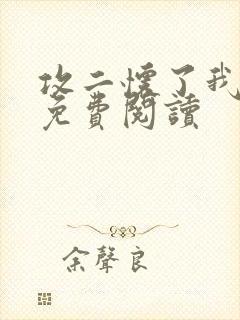 攻二懷了我
免費閱讀
余聲良